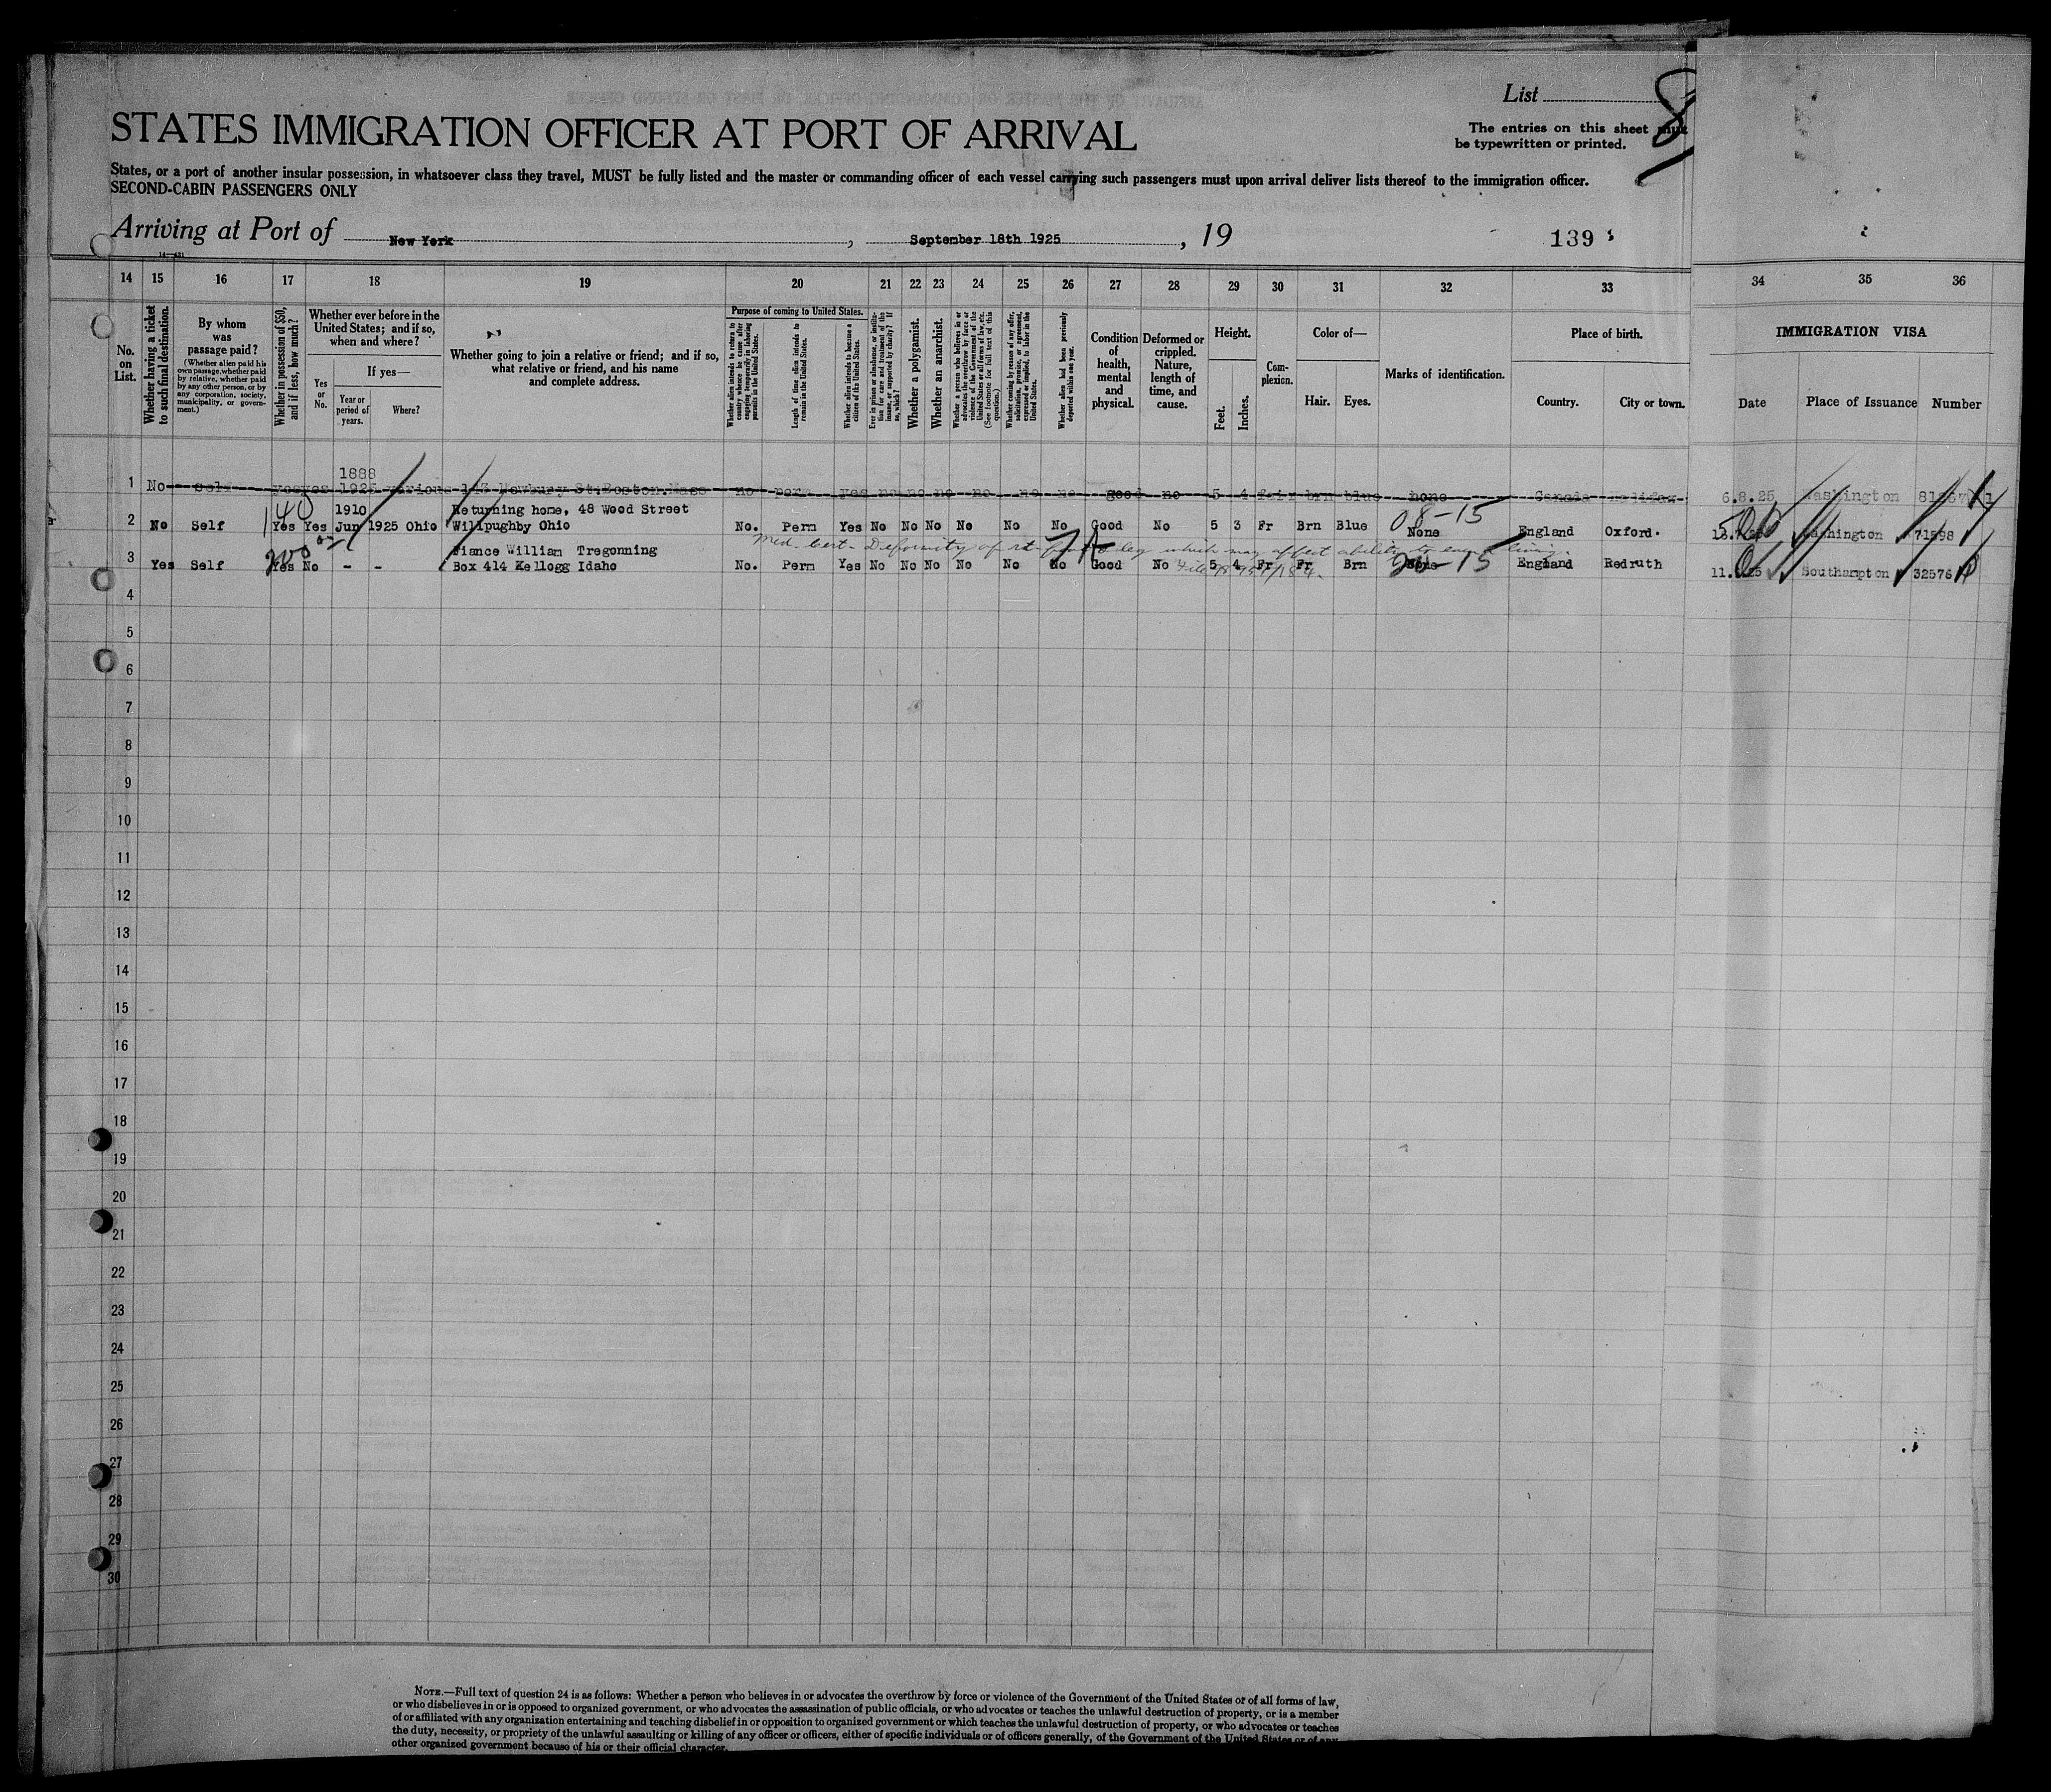 List 8
STATES IMMIGRATION OFFICER AT PORT OF ARRIVAL
The entries on this sheet must
be typewritten or printed.
States, or a port of another insular possession, in whatsoever class they travel, MUST be fully listed and the master or commanding officer of each vessel carrying such passengers must upon arrival deliver lists thereof to the immigration officer.
SECOND-CABIN PASSENGERS ONLY
Arriving at Port of New York, September 18th 1925, 19
139
14 15 16 17 18 19 20 21 22 23 24 25 26 27 28 29 30 31 32 33 34 35 36
No. on List.
Whether having a ticket to such final destination.
By whom was passage paid?
(Whether alien paid his own passage, whether paid by relative, whether paid by any other person, or by any corporation, society, municipality, or government.)
Whether in possession of $50, and if less, how much?
Whether ever before in the United States; and if so, when and where?
Yes or No.
If yes—
Year or period of years.
Where?
Whether going to join a relative or friend; and if so, what relative or friend, and his name and complete address.
Purpose of coming to United States.
Whether alien intends to return to country whence he came after engaging temporarily in laboring pursuits in the United States.
Length of time alien intends to remain in the United States.
Whether alien intends to become a citizen of the United States.
Ever in prison or almshouse, or institution for care and treatment of the insane, or supported by charity? If so, which?
Whether a polygamist.
Whether an anarchist.
Whether a person who believes in or advocates the overthrow by force or violence of the Government of the United States or all forms of law, etc. (See footnote for full text of this question.)
Whether coming by reason of any offer, solicitation, promise, or agreement, expressed or implied, to labor in the United States.
Whether alien had been previously deported within one year.
Condition of health, mental and physical.
Deformed or crippled. Nature, length of time, and cause.
Height.
Feet.
Inches.
Complexion.
Color of—
Hair.
Eyes.
Marks of identification.
Place of birth.
Country.
City or town.
IMMIGRATION VISA
Date
Place of Issuance
Number
1888
1 No Self yes yes 1925 various 143 Newbury St. Boston. Mass no perm yes no no no no no no good no 5 4 fair brn blue none Canada Halifax 6.8.25 Washington
140 1910 Returning home, 48 Wood Street 08-15
2 No Self Yes Yes Jun 1925 Ohio Willpughby Ohio No. Perm Yes No No No No No No Good No 5 3 Fr Brn Blue None England Oxford. Washington 71598
Med. cert- Deformity of rt. leg which may affect ability to earn living.
200 Fiance William Tregonning
3 Yes Self Yes No - - Box 414 Kellogg Idaho No. Perm Yes No No No No No No Good No 5 4 Fr Fr Brn 20-15 England Redruth Southampton 32576
4
5
6
7
8
9
10
11
12
13
14
15
16
17
18
19
20
21
22
23
24
25
26
27
28
29
30
NOTE.—Full text of question 24 is as follows: Whether a person who believes in or advocates the overthrow by force or violence of the Government of the United States or of all forms of law,
or who disbelieves in or is opposed to organized government, or who advocates the assassination of public officials, or who advocates or teaches the unlawful destruction of property, or is a member
of or affiliated with any organization entertaining and teaching disbelief in or opposition to organized government or which teaches the unlawful destruction of property, or who advocates or teaches
the duty, necessity, or propriety of the unlawful assaulting or killing of any officer or officers, either of specific individuals or of officers generally, of the Government of the United States or of any
other organized government because of his or their official character.